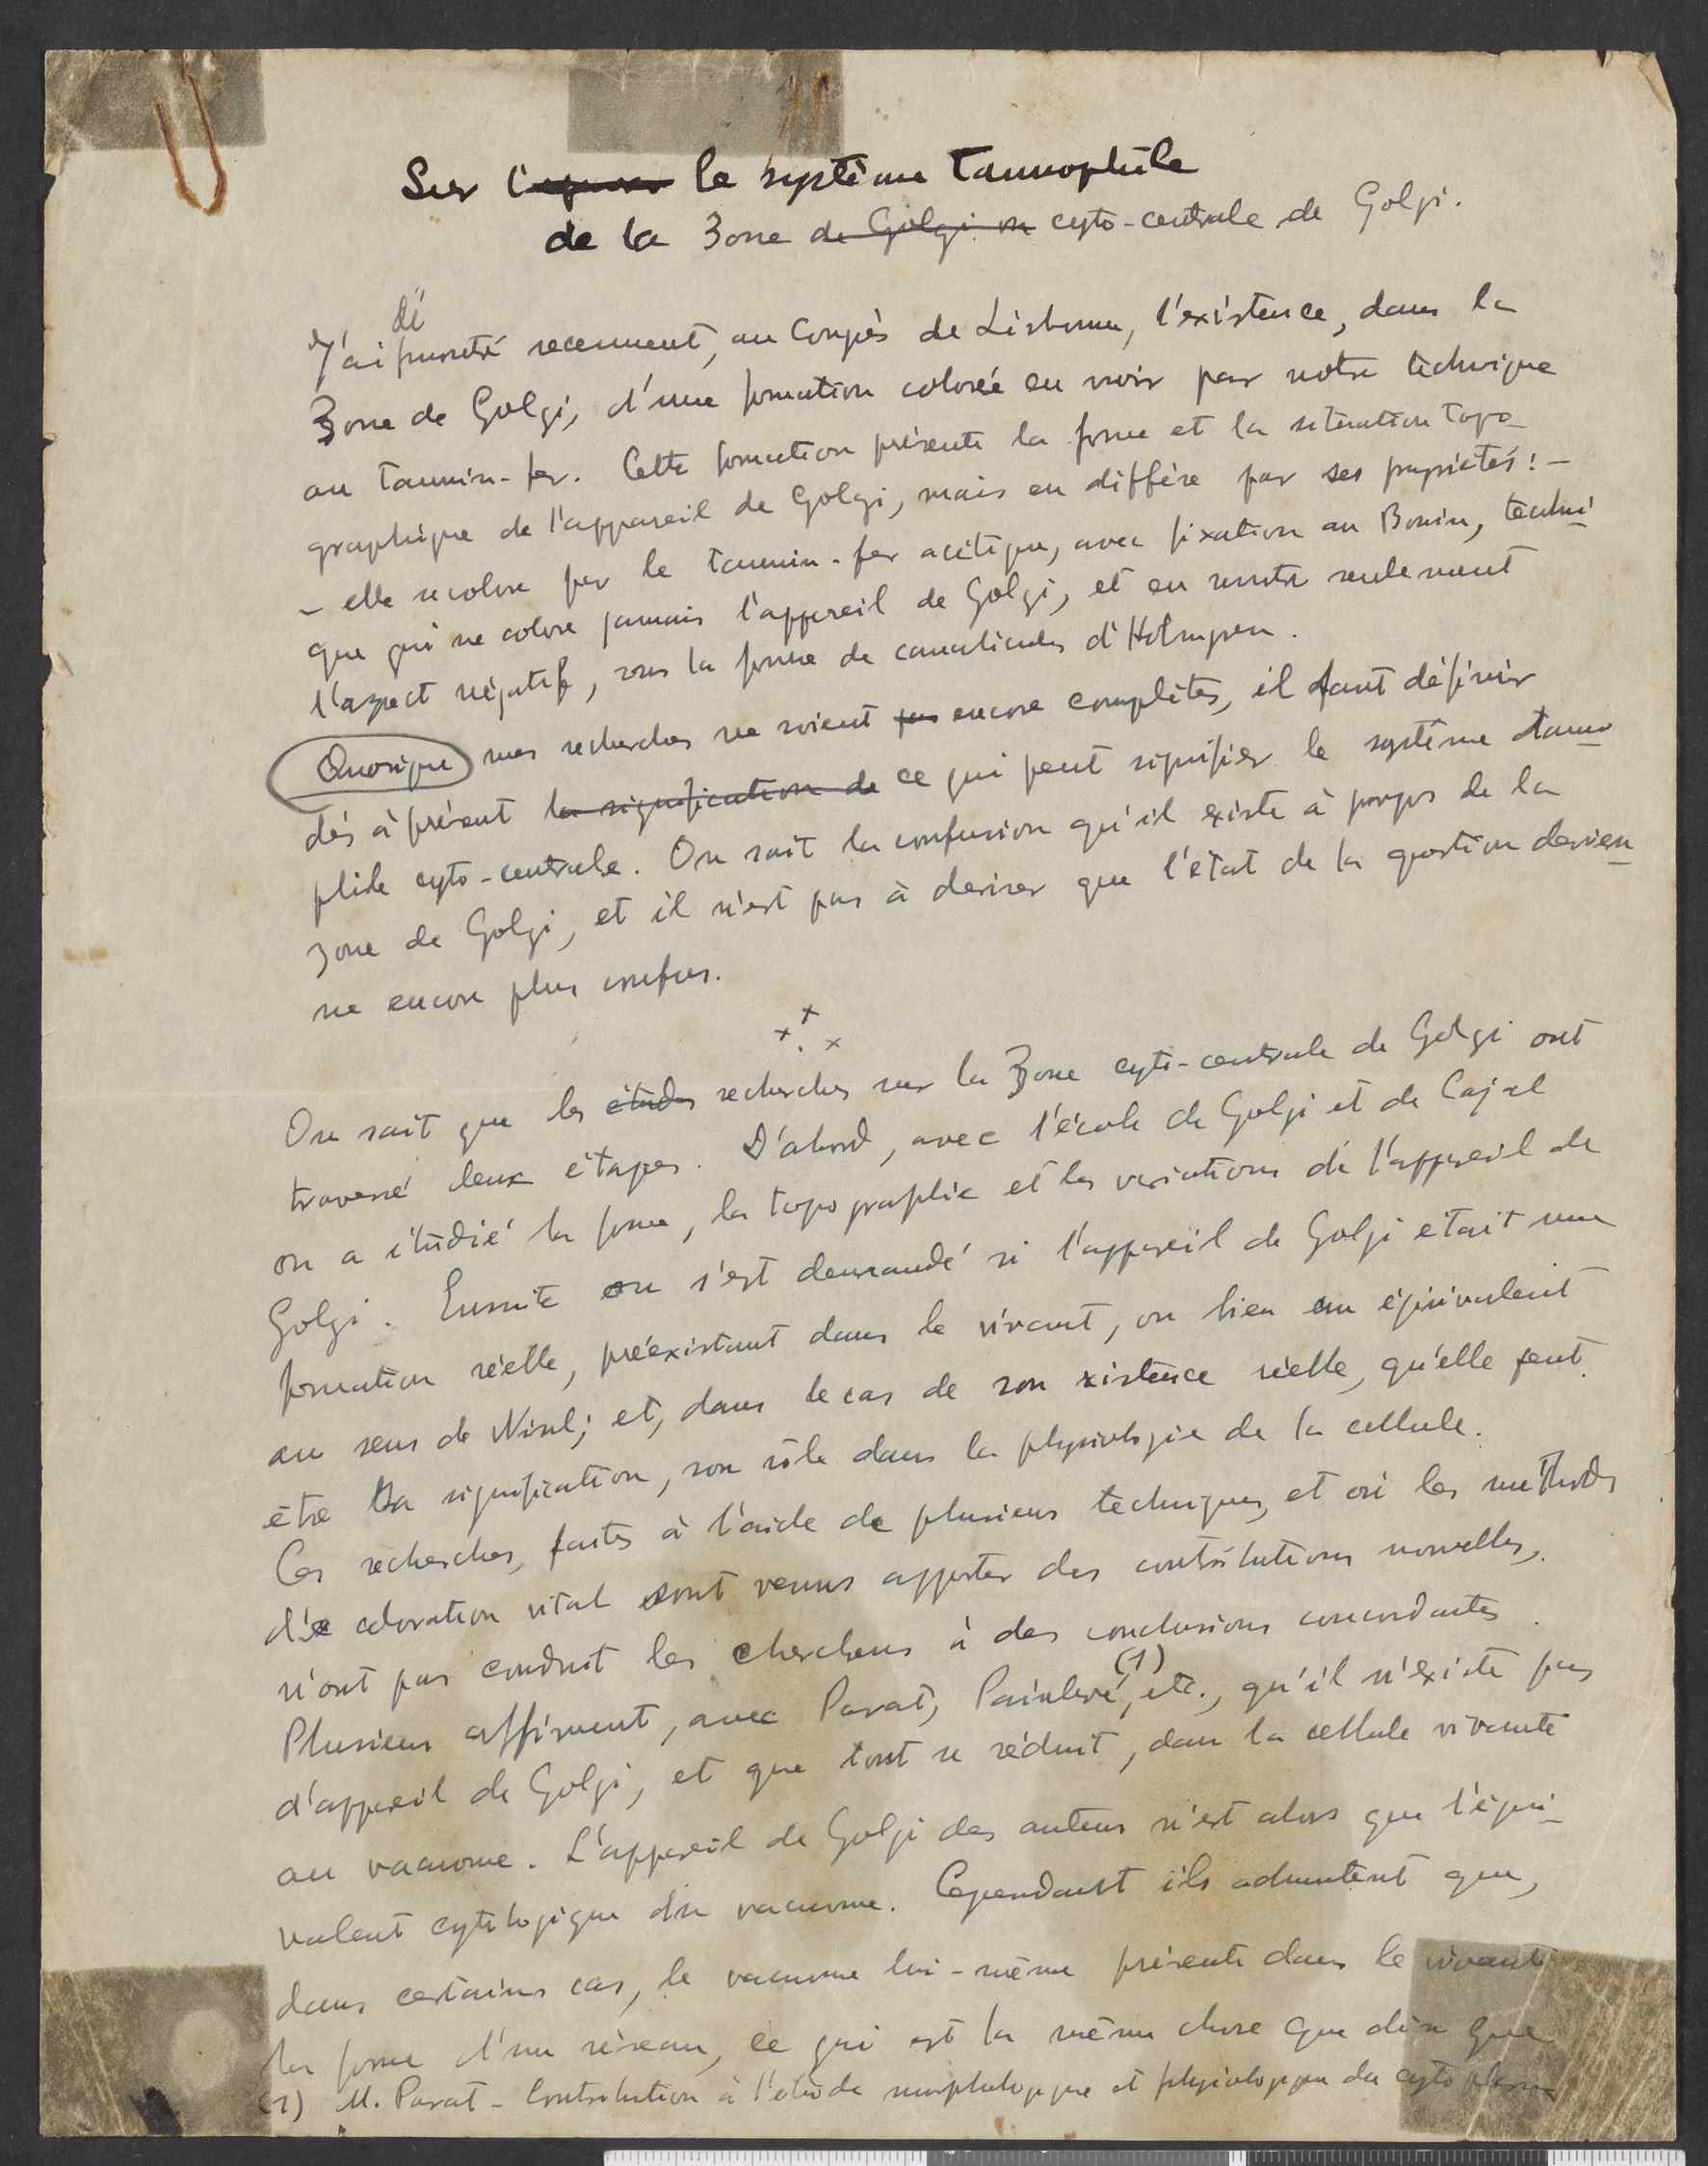 Sur l' le système tannophile
de la Zone de Golgi ou cyto-centrale de Golgi.
dé
J'ai montré recemment, au Congrès de Lisbonne, l'existence, dans la
Zone de Golgi, d'une formation colorée en noir par notre technique
au tannin-fer. Cette formation présente la forme et la situation topo-
graphique de l'appareil de Golgi, mais en diffère par ses propriétés: -
- elle se colore par le tannin-fer acétique, avec fixation au Bouin, techni
que qui ne colore jamais l'appareil de Golgi, et en montre seulement
l'aspect négatif, sous la forme de canalicules d'Holmgren.
Quoique mes recherches ne soient pas encore complètes, il faut définir
dès à présent la signification de ce qui peut signifier le système tanno
phile cyto-centrale. On sait la confusion qu'il existe à propos de la
zone de Golgi, et il n'est pas à desirer que l'état de la question devien
ne encore plus confus.
x x . x
On sait que les études recherches sur la Zone cyto-centrale de Golgi ont
traversé deux étapes. D'abord, avec l'école de Golgi et de Cajal
on a étudié la forme, la topographie et les variations de l'appareil de
Golgi. Ensuite on s'est demandé si l'appareil de Golgi etait une
formation réelle, préexistant dans le vivant, ou bien un équivalent
au sens de Nissl; et, dans le cas de son existence réelle, qu'elle peut
être sa signification, son rôle dans la physiologie de la cellule.
Ces recherches, faites à l'aide de plusieurs techniques, et où les méthodes
de coloration vital sont venus apporter des contributions nouvelles,
n'ont pas conduit les chercheurs à des conclusions concordantes.
Plusieurs affirment, avec Parat, Painlevé, (1) etc., qu'il n'existe pas
d'appareil de Golgi, et que tout se réduit, dans la cellule vivante
au vacuome. L'appareil de Golgi des auteurs n'est alors que l'équi-
valent cytologique du vacuome. Cependant ils admettent que,
dans certains cas, le vacuome lui-même présente dans le vivant
la forme d'un réseau, ce qui est la même chose que dire que
(1) M. Parat - Contribution à l'étude morphologique et physiologique du cytoplasme